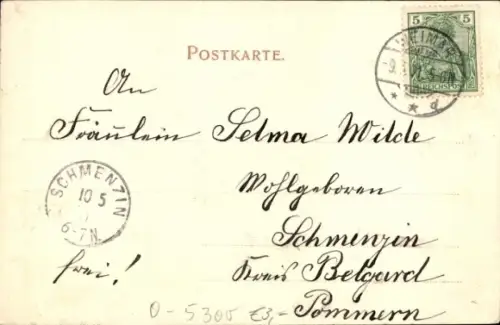 POSTKARTE.
5 5
WEIMAR
An
Fräulein Selma Wilde
Wohlgeboren
Schmenzin
Kreis Belgard
Pommern
SCHMENZIN
10 5
6-7N.
frei!
0-5300 €3,-